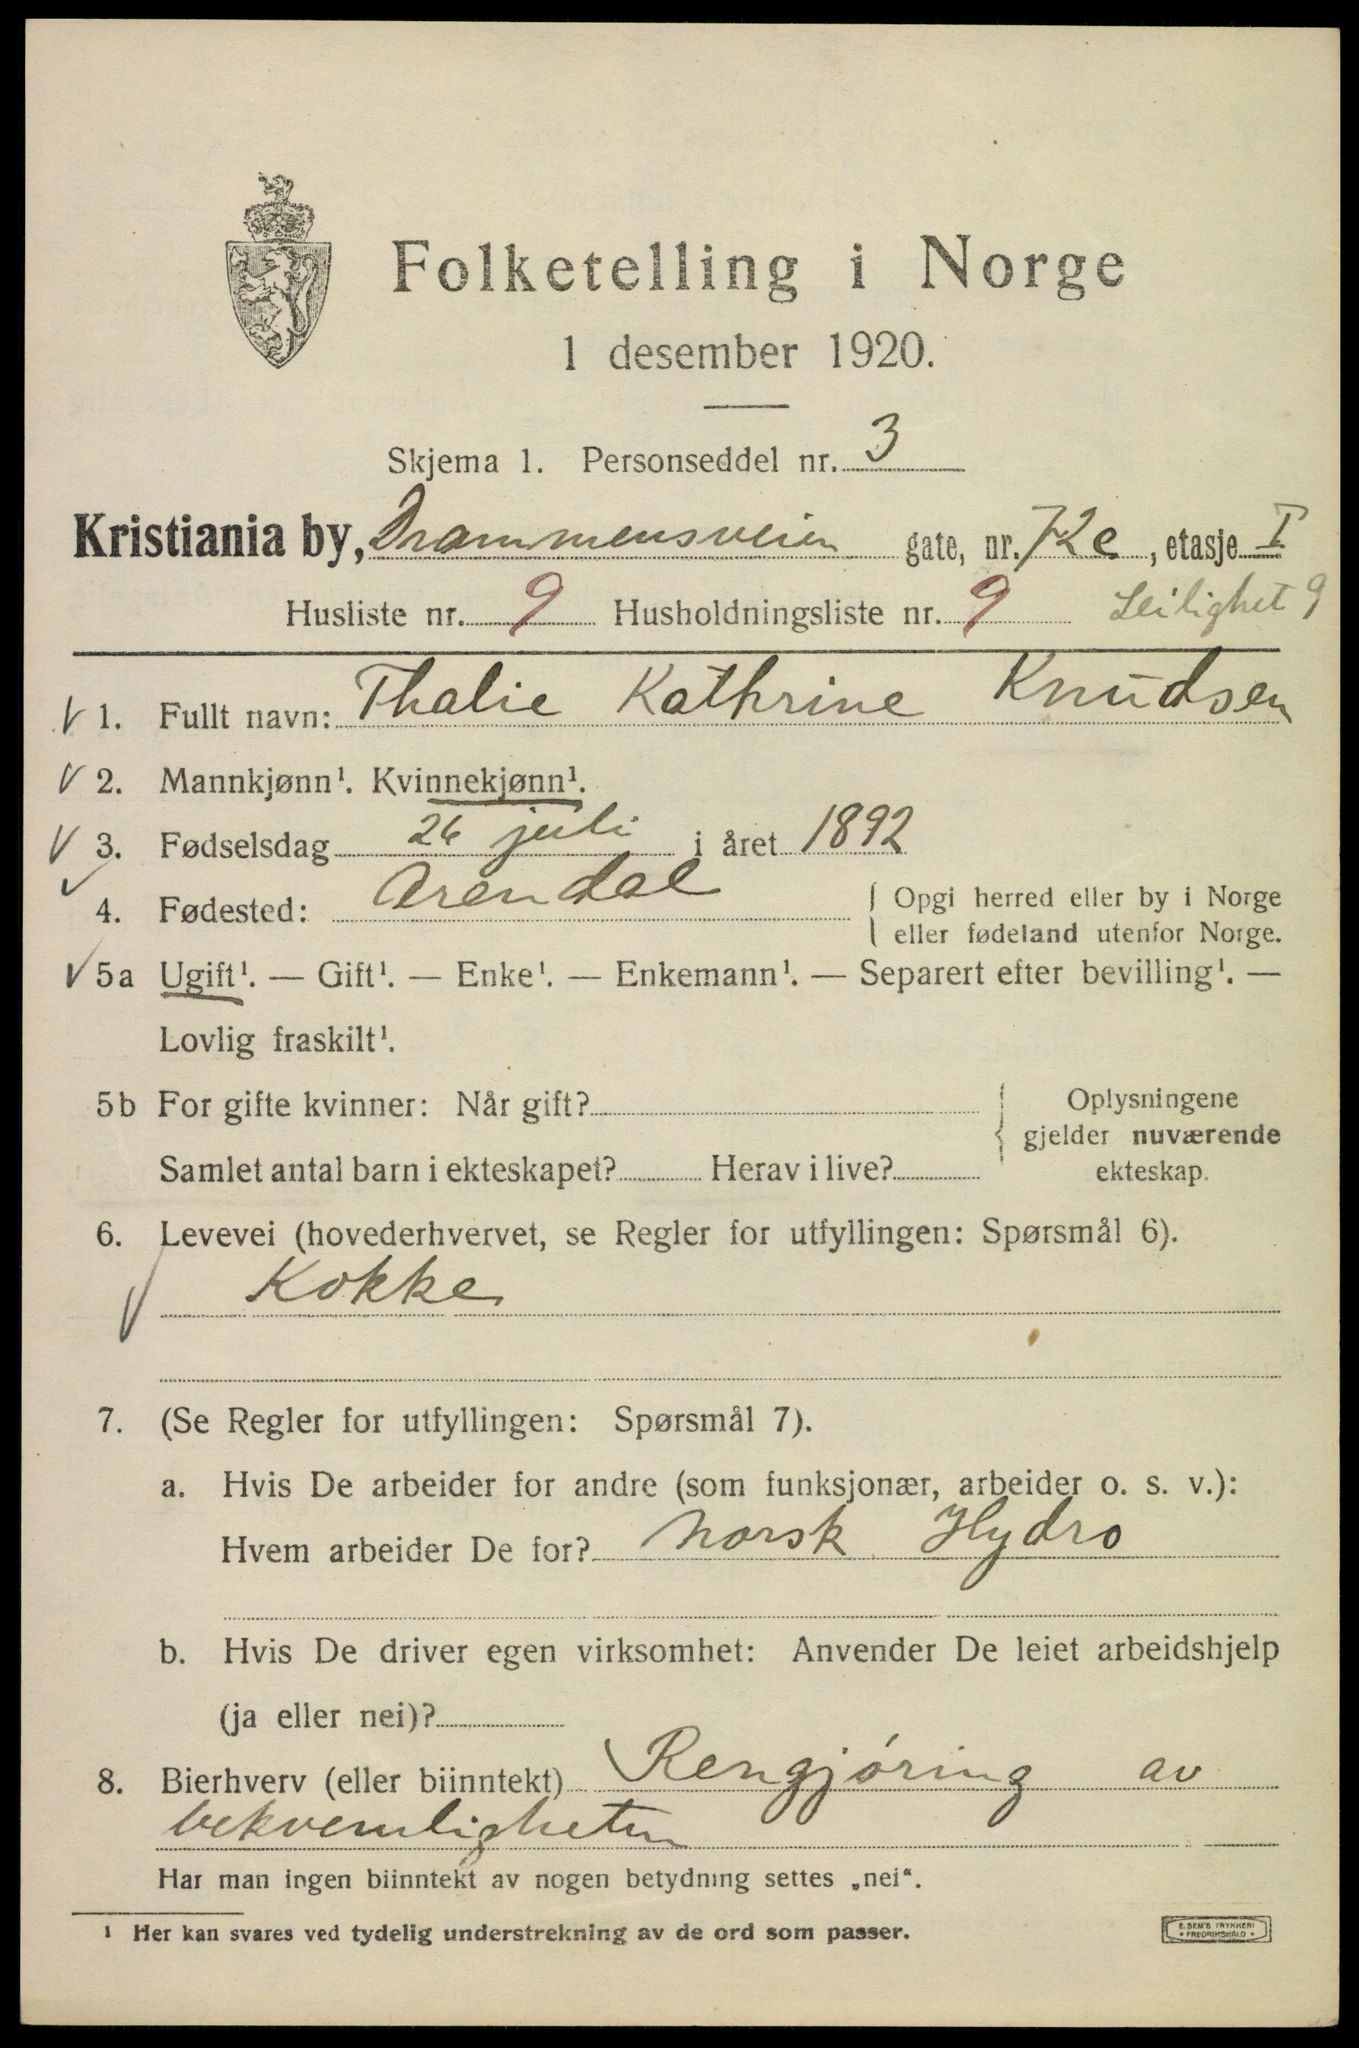 Folketelling i Norge
1 desember 1920.
Skjema 1. Personseddel nr. 3
Kristiania by, Drammensveien gate, nr. 72e, etasje I
Husliste nr. 9 Husholdningsliste nr. 9 Leilighet 9
1. Fullt navn: Thalie Kathrine Knudsen
2. Mannkjønn¹. Kvinnekjønn¹.
3. Fødselsdag 26 juli i året 1892
4. Fødested: Arendal { Opgi herred eller by i Norge
eller fødeland utenfor Norge.
5a Ugift¹. — Gift¹. — Enke¹. — Enkemann¹. — Separert efter bevilling¹. —
Lovlig fraskilt¹.
5b For gifte kvinner: Når gift? { Oplysningene
gjelder nuværende
Samlet antal barn i ekteskapet? Herav i live? ekteskap.
6. Levevei (hovederhvervet, se Regler for utfyllingen: Spørsmål 6).
Kokke
7. (Se Regler for utfyllingen: Spørsmål 7).
a. Hvis De arbeider for andre (som funksjonær, arbeider o. s. v.):
Hvem arbeider De for? Norsk Hydro
b. Hvis De driver egen virksomhet: Anvender De leiet arbeidshjelp
(ja eller nei)?
8. Bierhverv (eller biinntekt) Rengjøring av
bekvemligheten
Har man ingen biinntekt av nogen betydning settes „nei“.
¹ Her kan svares ved tydelig understrekning av de ord som passer.
E. SEM'S TRYKKERI
FREDRIKSHALD